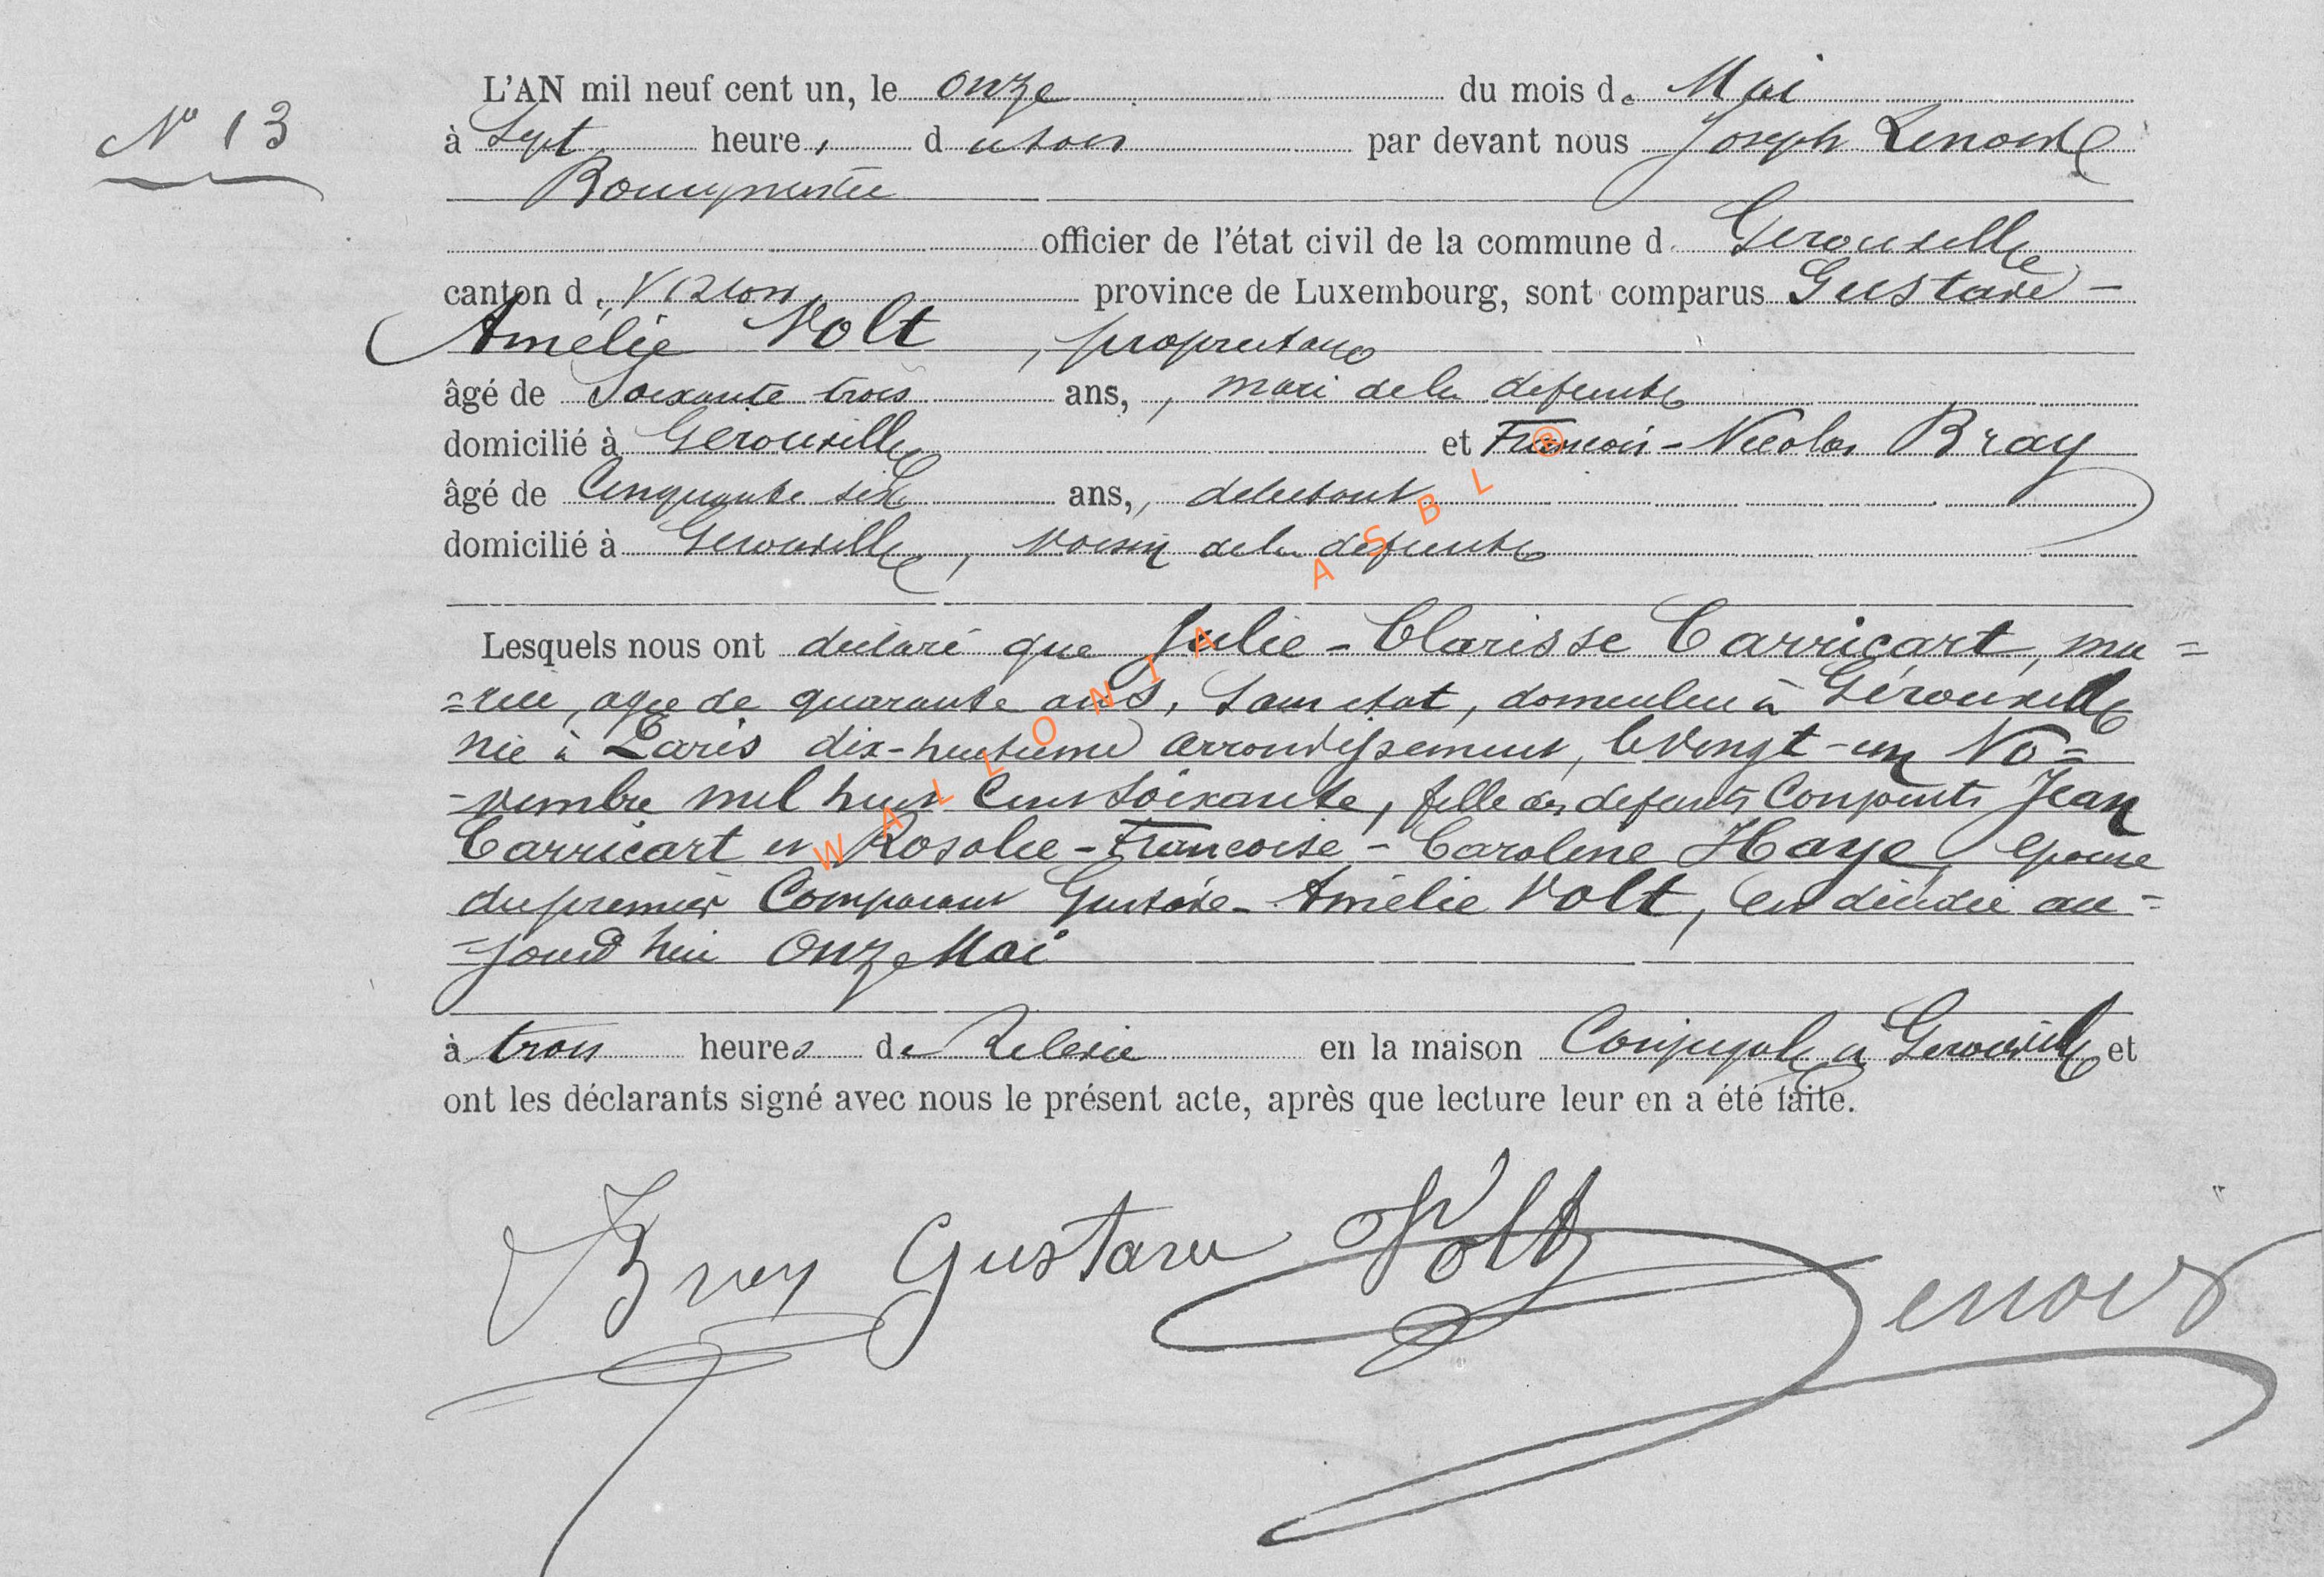 N° 13
L'AN mil neuf cent un, le onze du mois de Mai
à Sept heures du soir par devant nous Joseph Lenoir
Bourgmestre
officier de l'état civil de la commune de Gérouville
canton de Virton province de Luxembourg, sont comparus Gustave-
Amélie Volt, propriétaire
âgé de Soixante trois ans, mari de la défunte
domicilié à Gérouville et François-Nicolas Bray
âgé de Cinquante six ans, débitant
domicilié à Gérouville, voisin de la défunte
Lesquels nous ont déclaré que Julie-Clarisse Carricart, ma=
=riée, agée de quarante ans, Sans état, domiciliée à Gérouville
née à Paris dix-huitième arrondissement, le vingt-un No=
-vembre mil huit Cent Soixante, fille des défunts Conjoints Jean
Carricart et Rosalie-Françoise-Caroline Haye, épouse
du premier Comparant Gustave-Amélie Volt, est décédée au=
=jourd'hui Onze Mai
à trois heures de Relevée en la maison Conjugale à Gérouville et
ont les déclarants signé avec nous le présent acte, après que lecture leur en a été faite.
Bray Gustave Volt Lenoir
WALLONIA ASBL ®